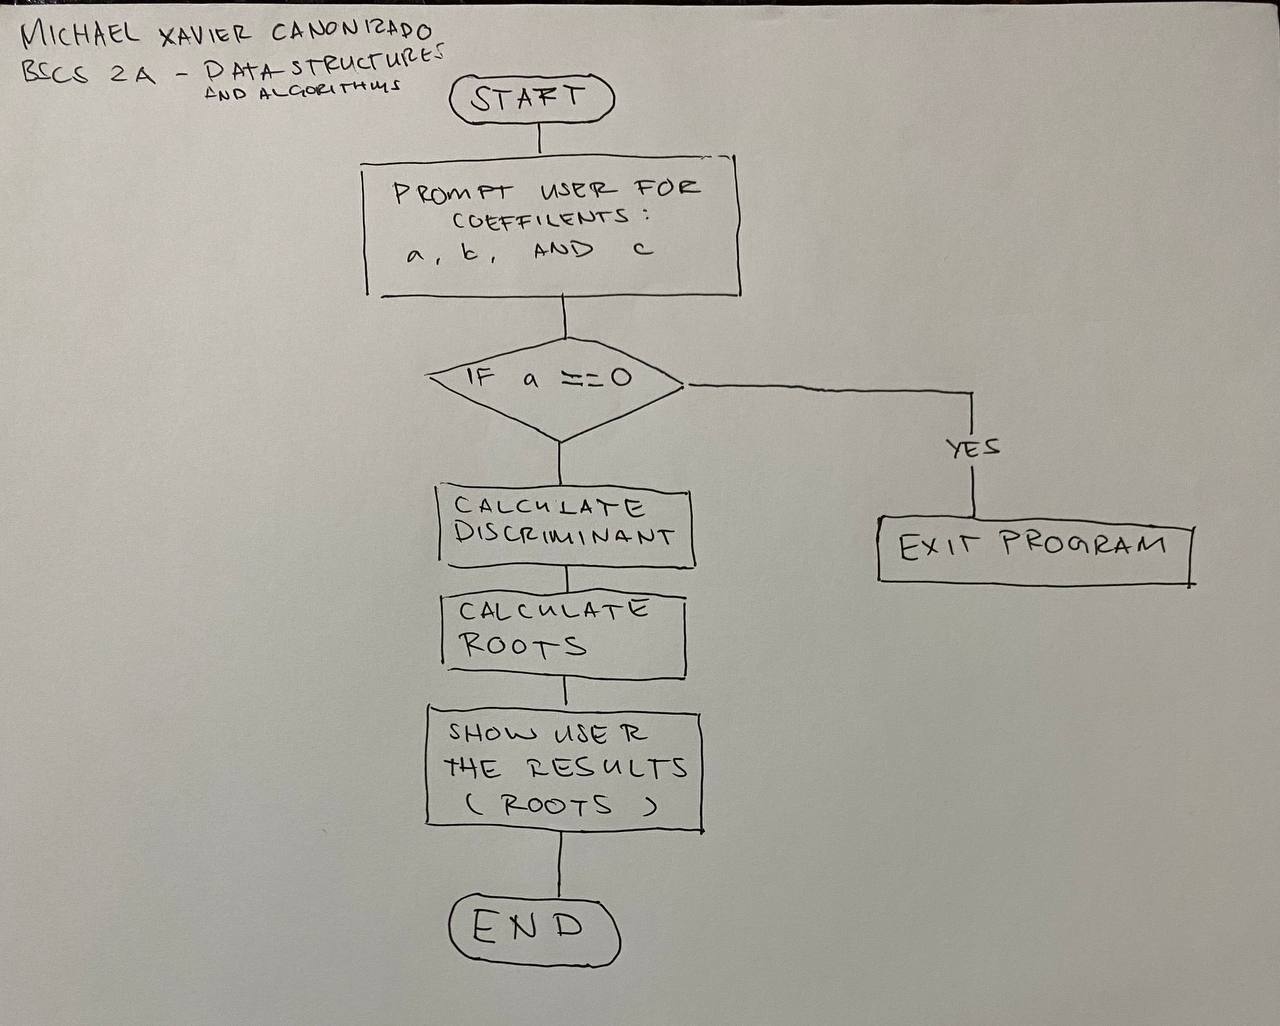 MICHAEL XAVIER CANONIZADO
BSCS 2A - DATA STRUCTURES
AND ALGORITHMS
START
PROMPT USER FOR
COEFFILENTS:
a, b, AND c
IF a == 0
YES
CALCULATE
DISCRIMINANT
EXIT PROGRAM
CALCULATE
ROOTS
SHOW USER
THE RESULTS
( ROOTS )
END